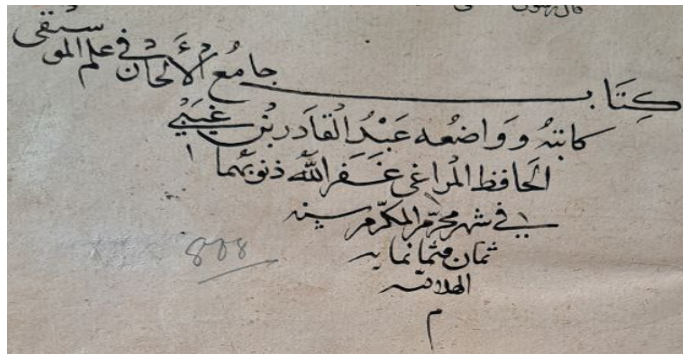 كتاب جامع الألحان في علم الموسيقى
كاتبه وواضعه عبد القادر بن غيبي
الحافظ المراغي غفر الله ذنوبهما
في شهر محرم المكرم سنه
ثمان وثمانمايه
الهلاليه
م
808